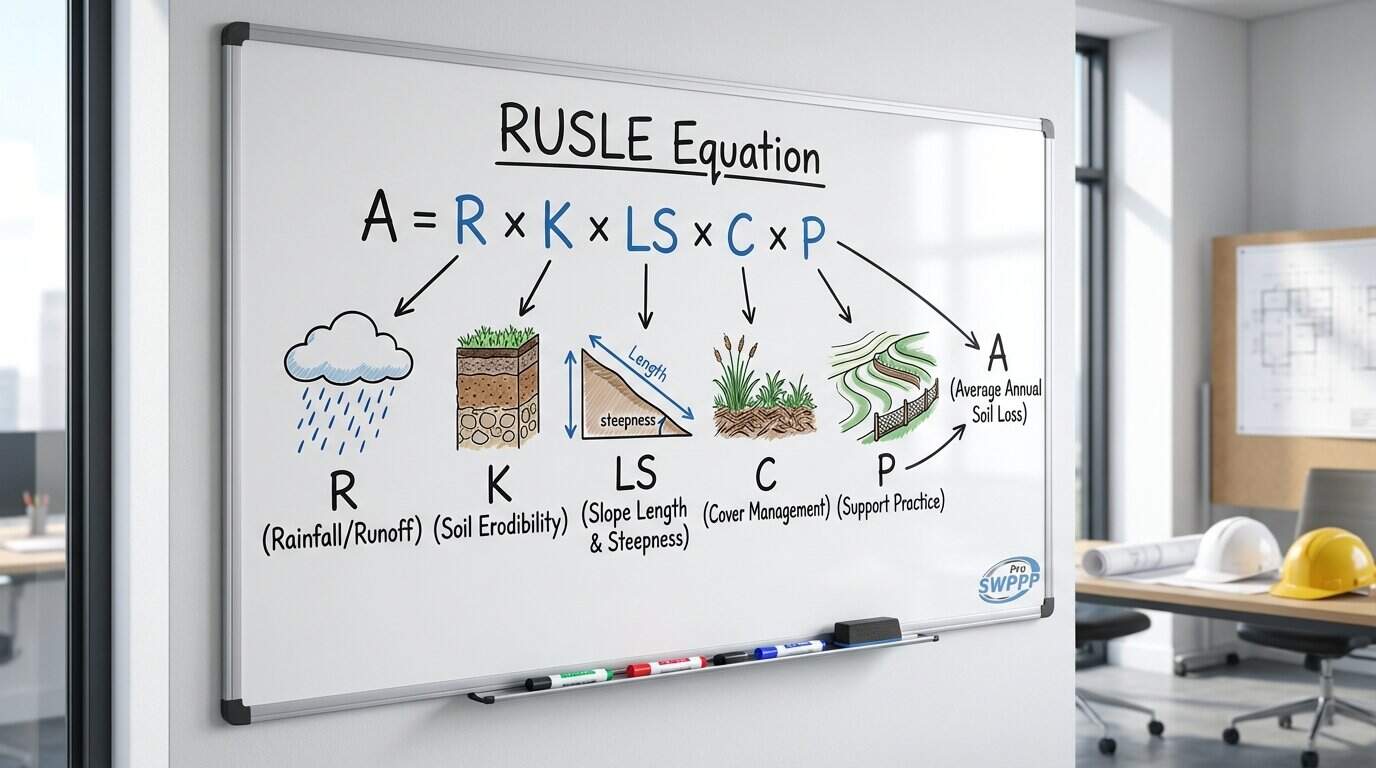 RUSLE Equation
A = R × K × LS × C × P
Length
steepness
A
(Average Annual
Soil Loss)
R
(Rainfall/Runoff)
K
(Soil Erodibility)
LS
(Slope Length
& Steepness)
C
(Cover Management)
P
(Support Practice)
Pro
SWPPP